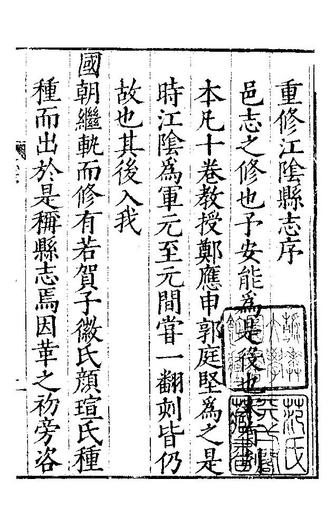 重修江陰縣志序
邑志之修也予安能為是後也
本凡十卷教授鄭應申郭庭堅為之是
時江陰為軍元至元間嘗一翻刻皆仍
故也其後入我
國朝繼軌而修有若賀子徽氏顔瑄氏種
種而出於是稱縣志焉因革之初旁咨
范氏
天一閣
藏書